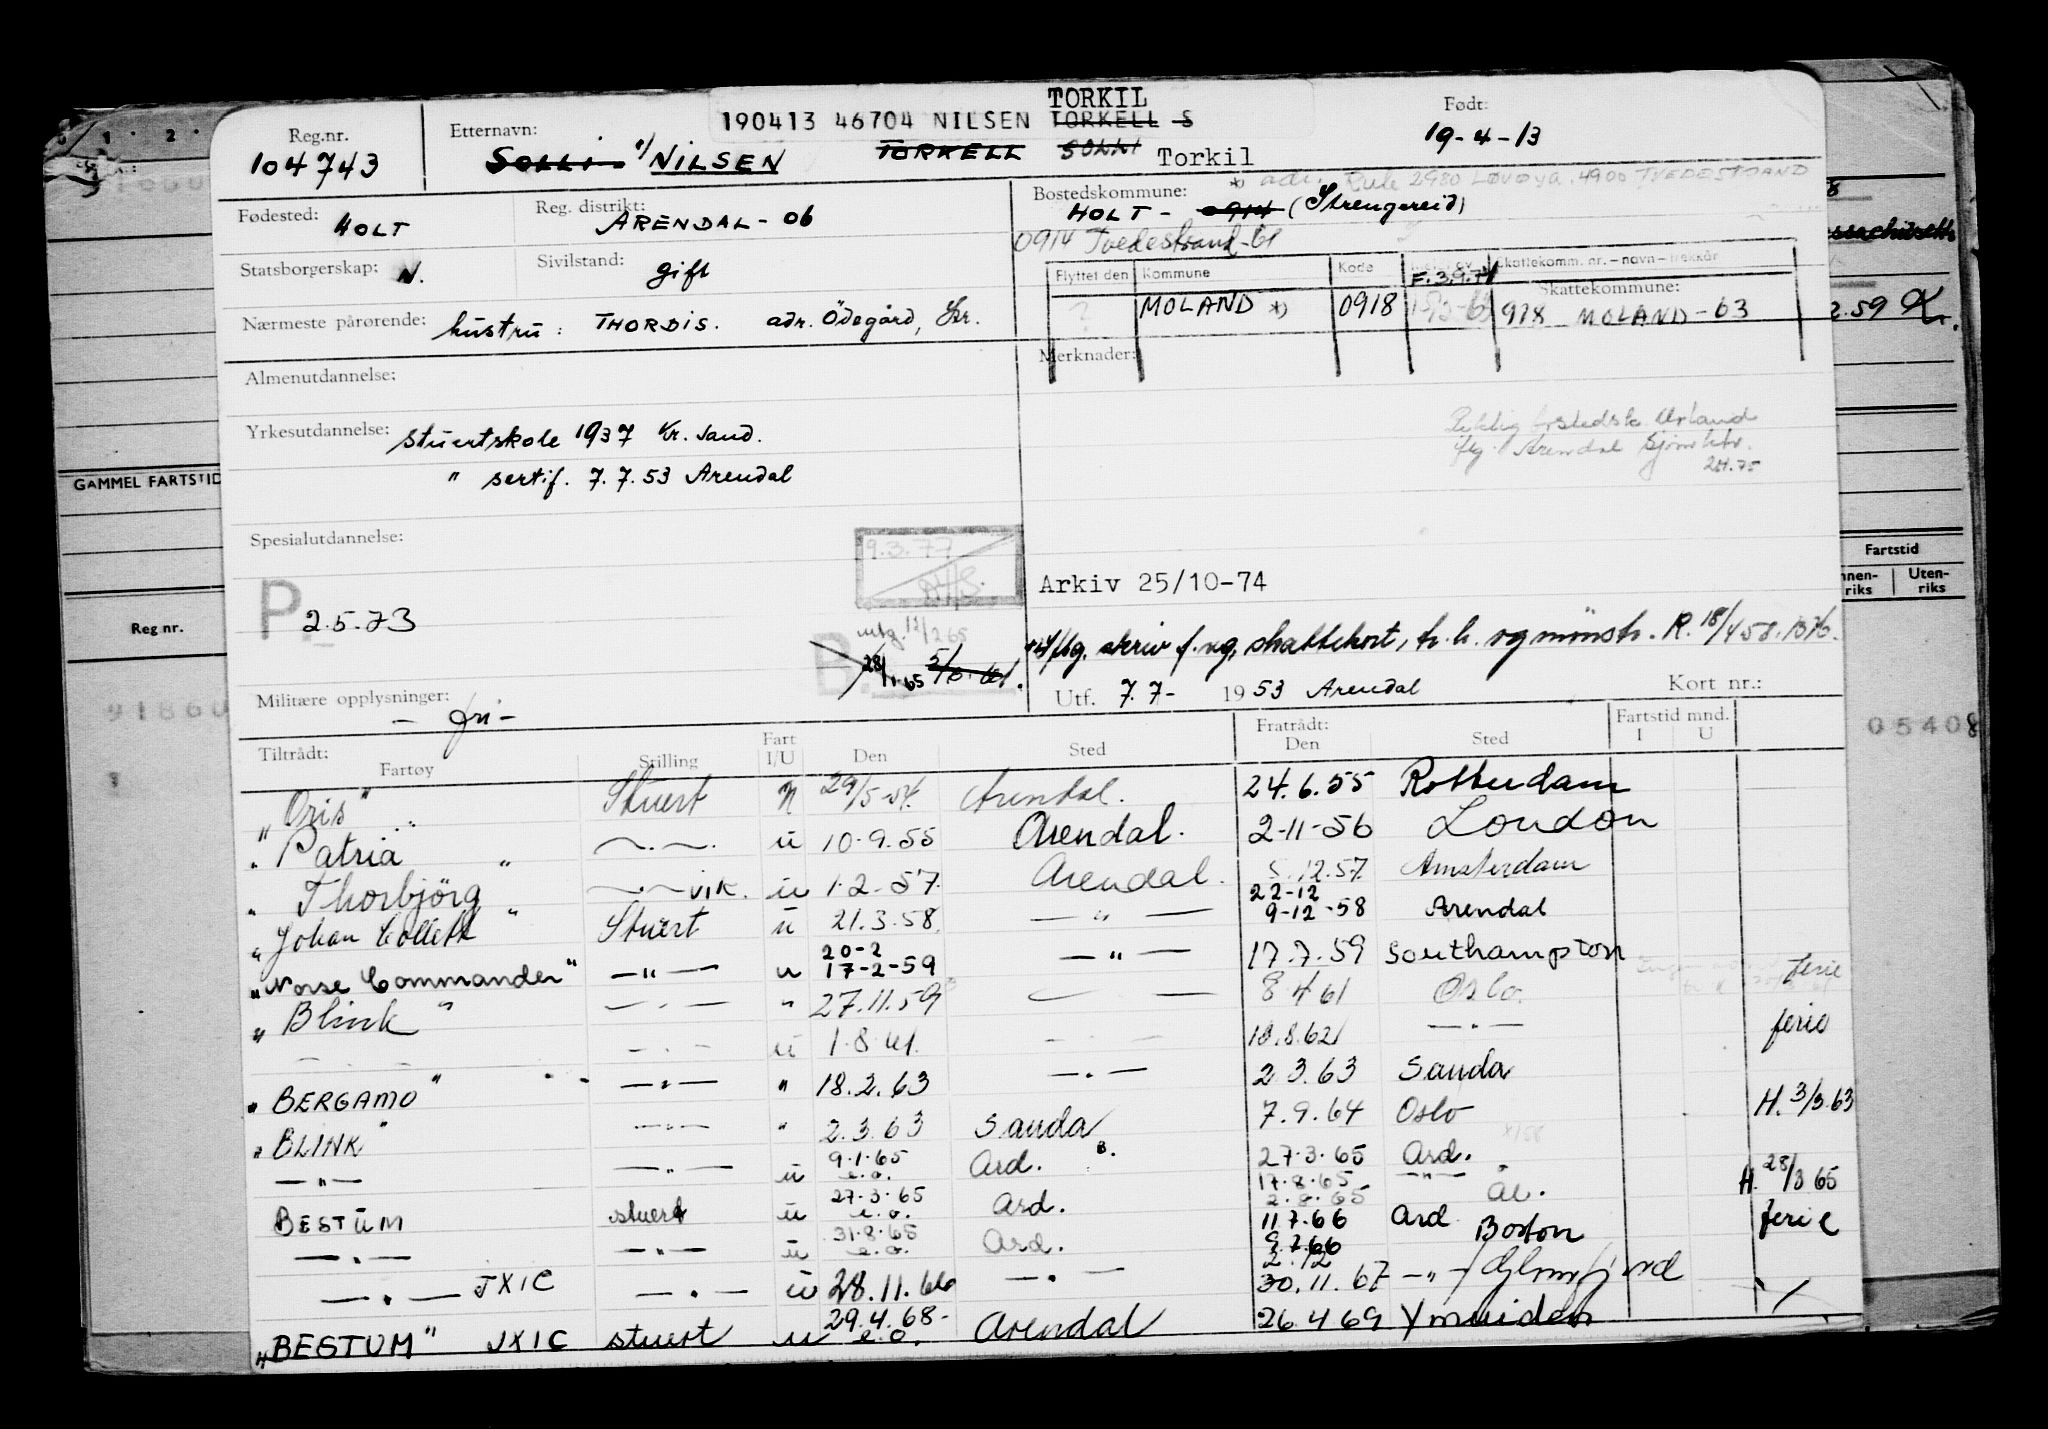 TORKIL
190413 46704 NILSEN TORKELL S
Reg.nr. 104743
Etternavn: SOLLI s/ NILSEN TORKELL SOLLI Torkil
Født: 19-4-13
Fødested: HOLT
Reg. distrikt: ARENDAL - 06
Bostedskommune: *) adr. Rute 2980 LØVØYA, 4900 TVEDESTRAND
HOLT - 0914 (Strengereid)
0914 Tvedestrand-61
Statsborgerskap: N.
Sivilstand: gift
Flyttet den Kommune Kode F.3.9.71 Skattekomm. nr. - navn - trekkår
Skattekommune:
? MOLAND *) 0918 918 MOLAND - 63
Nærmeste pårørende: hustru: THORDIS. adr. Ödegård, Kr.
2.59
Merknader:
Almenutdannelse:
Yrkesutdannelse: stuertskole 1937 Kr. Sand.
" sertif. 7.7.53 Arendal
Arendal
GAMMEL FARTSTID
Spesialutdannelse:
9.3.77
Arkiv 25/10-74
Fartstid
Innen-riks Uten-riks
P. 2.5.73
Reg nr.
utg. 12/2 65
28/1.65
skriv f. ug. skattekort, h.h. og mønstr. R. 18/4 58.
Utf. 7.7- 1953 Arendal
Kort nr.:
Militære opplysninger: - fri -
91860
05408
Tiltrådt: Fartøy Stilling Fart I/U Den Sted Fratrådt: Den Sted Fartstid mnd. I U
"Oris" Stuert N 29/5-54. Arendal. 24.6.55 Rotterdam
"Patria" —.— u 10.9.55 Arendal. 2-11-56 London
"Thorbjörg" —.— vik. u 1.2.57. Arendal. 5.12.57. Amsterdam
"Johan Collett" Stuert u 21.3.58. — " — 22-12 9-12-58 Arendal
"Norse Commander" — " — u 20-2 17-2-59 — " — 17.7.59 Southampton
"Blink" — . — " 27.11.59 — — 8.4.61 Oslo. ferie
— — — . — u 1.8.61. — . — 18.8.62 — . — ferie
"BERGAMO" — . — " 18.2.63 — . — 2.3.63 Sauda
"BLINK" — . — " 2.3.63 Sauda 7.9.64 Oslo H. 3/3.63
— " — — " — u 9.1.65 e.o. Ard. 27.3.65 Ard.
BESTUM stuert u 27.3.65 e.o. Ard. 17.8.65 2.8.65 — " — Ål. H. 28/3 65
— . — — " — u 31.8.65 e.o. Ard. 11.7.66 9.7.66 Ard Boston ferie
— . — JXIC — . — u 28.11.66 — . — 2.12 30.11.67 — " — / Glomfjord
"BESTUM" JXIC stuert u 29.4.68- e.o. Arendal 26.4.69 Ymuiden